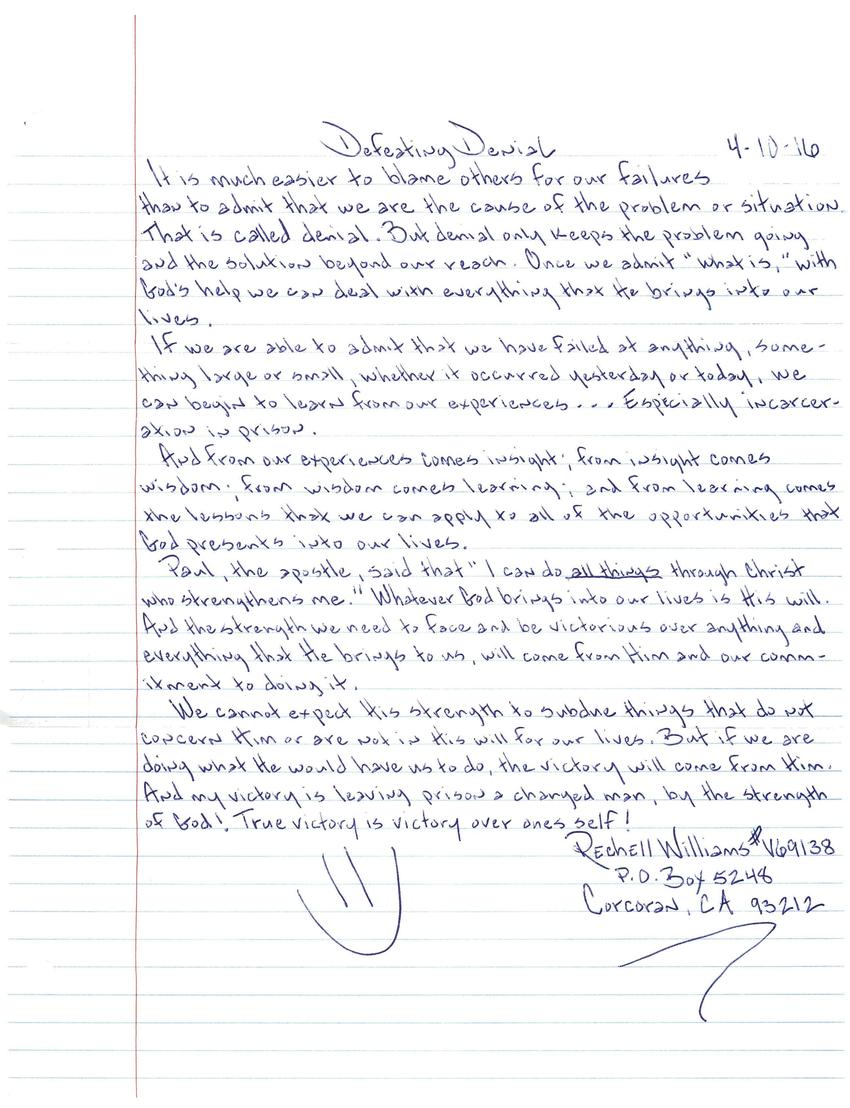 Defeating Denial 4-10-16
It is much easier to blame others for our failures
than to admit that we are the cause of the problem or situation.
That is called denial. But denial only keeps the problem going
and the solution beyond our reach. Once we admit "what is," with
God's help we can deal with everything that He brings into our
lives.
If we are able to admit that we have failed at anything, some-
thing large or small, whether it occurred yesterday or today, we
can begin to learn from our experiences... Especially incarcer-
ation in prison.
And from our experiences comes insight; from insight comes
wisdom; from wisdom comes learning; and from learning comes
the lessons that we can apply to all of the opportunities that
God presents into our lives.
Paul, the apostle, said that "I can do all things through Christ
who strengthens me." Whatever God brings into our lives is His will.
And the strength we need to face and be victorious over anything and
everything that He brings to us, will come from Him and our comm-
itment to doing it.
We cannot expect His strength to subdue things that do not
concern Him or are not in His will for our lives. But if we are
doing what He would have us to do, the victory will come from Him.
And my victory is leaving prison a changed man, by the strength
of God! True victory is victory over ones self!
Rechell Williams #V69138
P.O. Box 5248
Corcoran, CA 93212